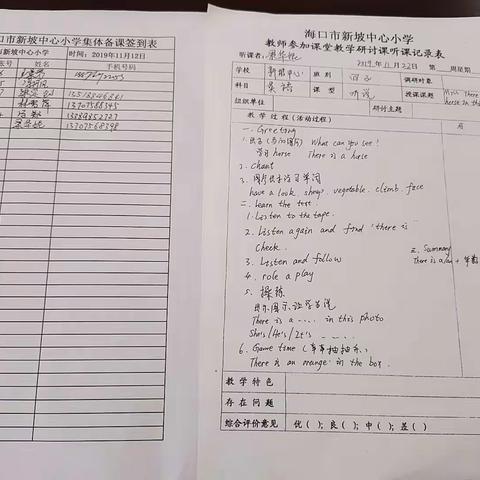 口市新坡中心小学集体备课签到表
坡中心小学
时间：2019年11月12日
手机号码
海口市新坡中心小学
教师参加课堂教学研讨课听课记录表
听课者：
2019年11月22日 第 周星期
学校 新坡中心 班别 四(2) 调研对象
科目 英语 课型 听说 授课课题 Miss There
horse in this
组织单位 研讨主题
教学过程（活动过程）
一. Greeting
What can you see?
学习 horse There is a horse
2. Chant
3. 图片出示学习单词
have a look, sheep, vegetable, climb, face
二. Learn the text.
1. Listen to the tape.
2. Listen again and find "there is"
Check.
3. Listen and follow
三. Summary
4. role a play
There is a/an + 单数
5. 操练
There is a .... in this photo
She's/He's/It's ....
6. Game time
There is an orange in the box.
教学特色
存在问题
综合评价意见 优（ ）；良（ ）；中（ ）；差（ ）